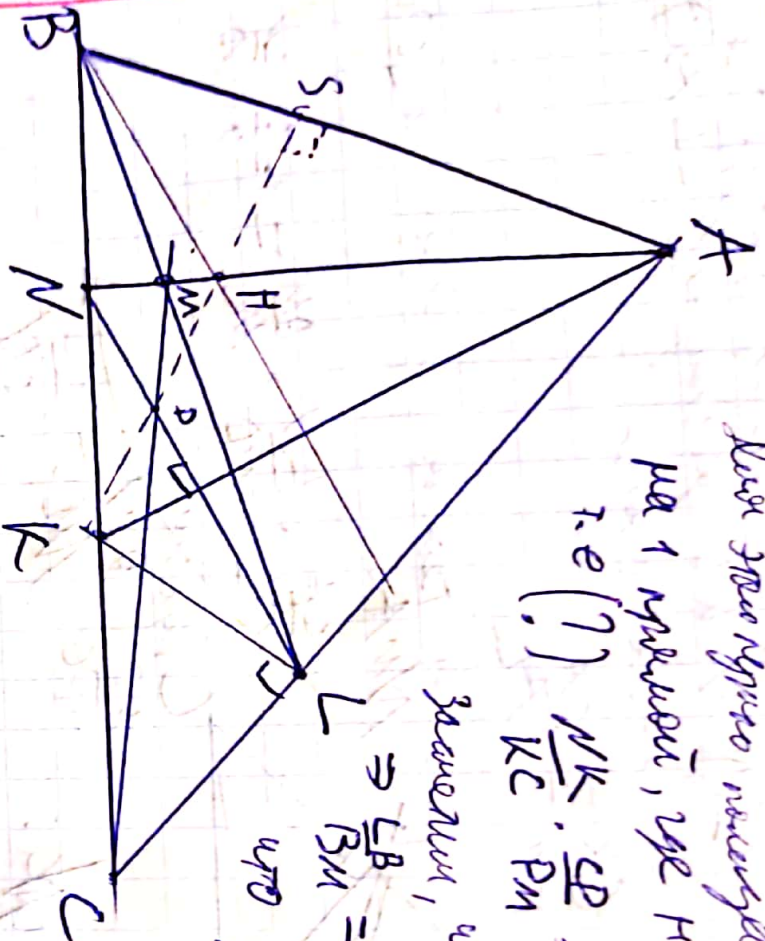 A
B
S
?
H
M
N
P
K
L
C
Для этого нужно
на 1 прямой, где H
т.е (?) NK/KC · CP/PM
Заметим, ч
⇒ LB/BM =
что